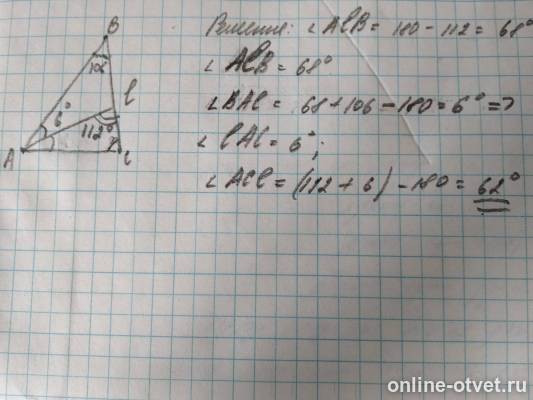 B
106
6°
l
112°
A
?
c
Решение: ∠ AlB = 180 - 112 = 68°
∠ AlB = 68°
∠ BAl = 68 + 106 - 180 = 6° =>
∠ lAC = 6°;
∠ ACl = (112 + 6) - 180 = 62°
online-otvet.ru